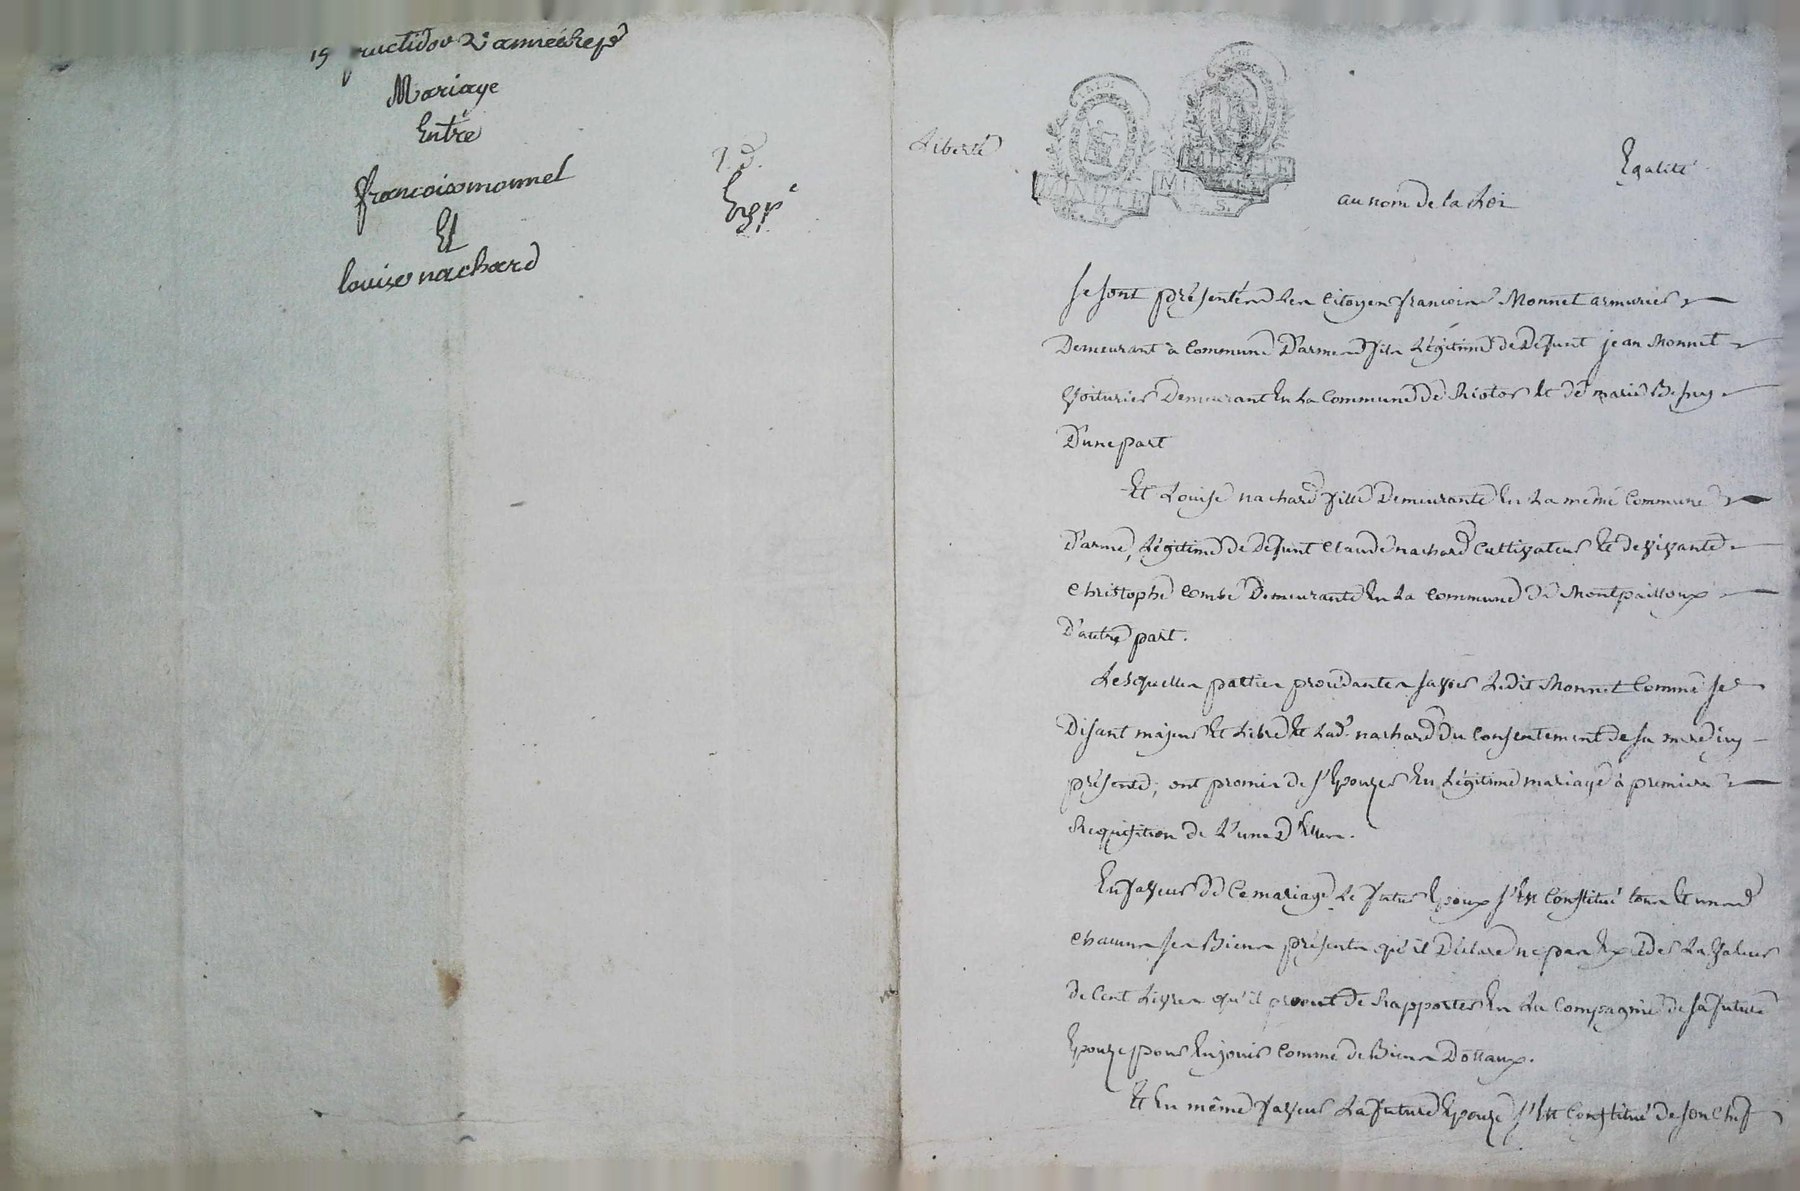 19 fructidor 2e année Rep
Mariage
Entre
francois monnet
Et
louise nachard
Exp é
Liberté
Egalité
MINUTE
au nom de la Loi
se sont présentés Les Citoyen francois Monnet armurier
Demeurant à Commune D'armes fils Légitime de Defunt jean Monnet
Voiturier Demeurant En La Commune De Riotor Et de marie
D'une part
Et Louise nachard fille Demeurante En La même Commune
D'arme, Légitime de Defunt Claude nachard Cultivateur Et de vivante
Christophe Combe Demeurante En La Commune De Montpailloux
D'autre part.
Lesquelles parties procédantes savoir Ledit Monnet Comme se
Disant majeur Et Libre Et Lad. nachard Du Consentement de sa mere icy
présente; ont promis de s'Epouzer En Légitime mariage à premiere
Requisition de L'une D'Elles.
En faveur de Ce mariage Le futur Epoux s'Est Constitué tous Et uns
chacuns ses Biens présents qu'il Déclare ne pas Exceder La Valeur
de Cent Livres qu'il promet de Rapporter En La Compagnie de sa future
Epouze pour En jouir Comme de Biens Dottaux.
Et En même faveur La future Epouze s'Est Constitué de son Chef